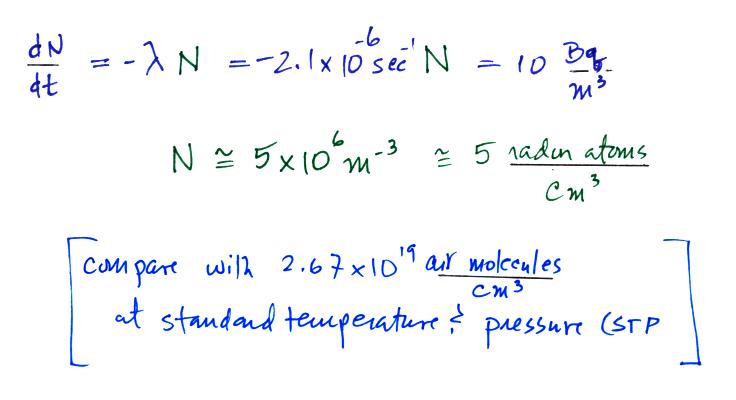 dN/dt = -λ N = -2.1 x 10⁻⁶ sec⁻¹ N = 10 Bq/m³
N ≅ 5 x 10⁶ m⁻³ ≅ 5 radon atoms/cm³
[compare with 2.67 x 10¹⁹ air molecules/cm³
at standard temperature & pressure (STP]